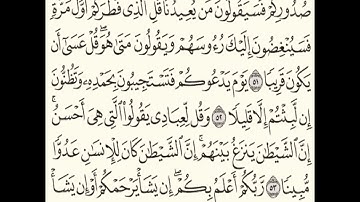 صُدُورِكُمْ فَسَيَقُولُونَ مَن يُعِيدُنَا قُلِ ٱلَّذِى فَطَرَكُمْ أَوَّلَ مَرَّةٍ
فَسَيُنْغِضُونَ إِلَيْكَ رُءُوسَهُمْ وَيَقُولُونَ مَتَىٰ هُوَ قُلْ عَسَىٰٓ أَن
يَكُونَ قَرِيبًا ٥١ يَوْمَ يَدْعُوكُمْ فَتَسْتَجِيبُونَ بِحَمْدِهِۦ وَتَظُنُّونَ
إِن لَّبِثْتُمْ إِلَّا قَلِيلًا ٥٢ وَقُل لِّعِبَادِى يَقُولُوا۟ ٱلَّتِى هِىَ أَحْسَنُ
إِنَّ ٱلشَّيْطَٰنَ يَنزَغُ بَيْنَهُمْ إِنَّ ٱلشَّيْطَٰنَ كَانَ لِلْإِنسَٰنِ عَدُوًّا
مُّبِينًا ٥٣ رَّبُّكُمْ أَعْلَمُ بِكُمْ إِن يَشَأْ يَرْحَمْكُمْ أَوْ إِن يَشَأْ